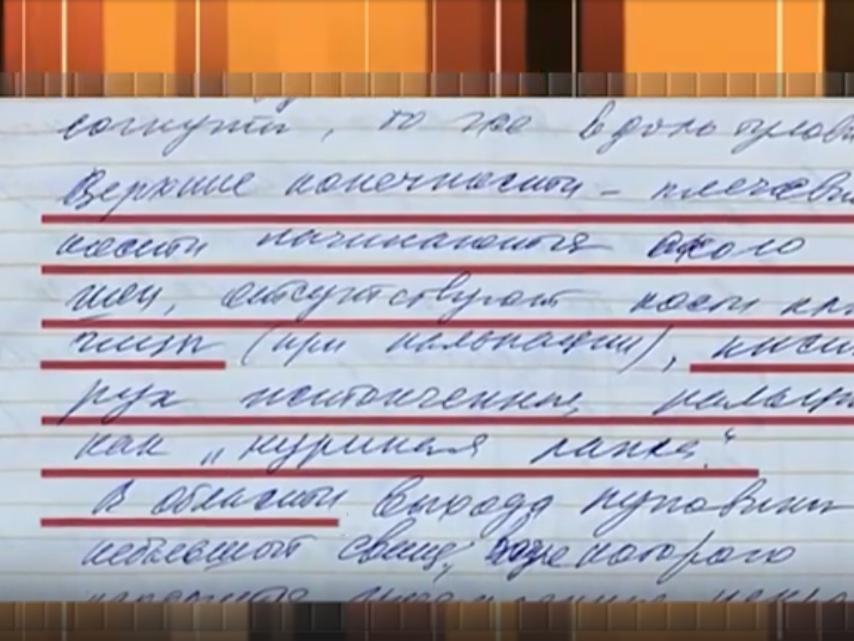 согнуты, то же вдоль тулови
Верхние конечности - плечевы
кости начинаются около
шеи, отсутствуют кости клю
чицы (при пальпации), кисти
рук истонченные, пальцы
как „куриная лапка“
В области выхода пуповины
небольшой свищ, возле которого